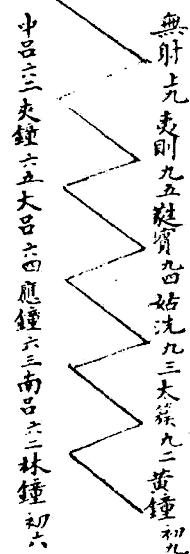 無射上九夷則九五蕤賓九四姑洗九三太簇九二黃鐘初九
中呂六二夾鐘六五大呂六四應鐘六三南呂六二林鐘初六